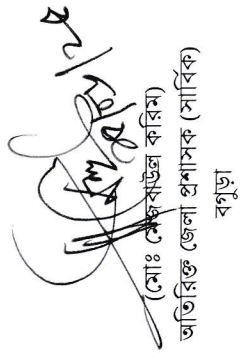 (মোঃ মেজবাউল করিম)
অতিরিক্ত জেলা প্রশাসক (সার্বিক)
বগুড়া